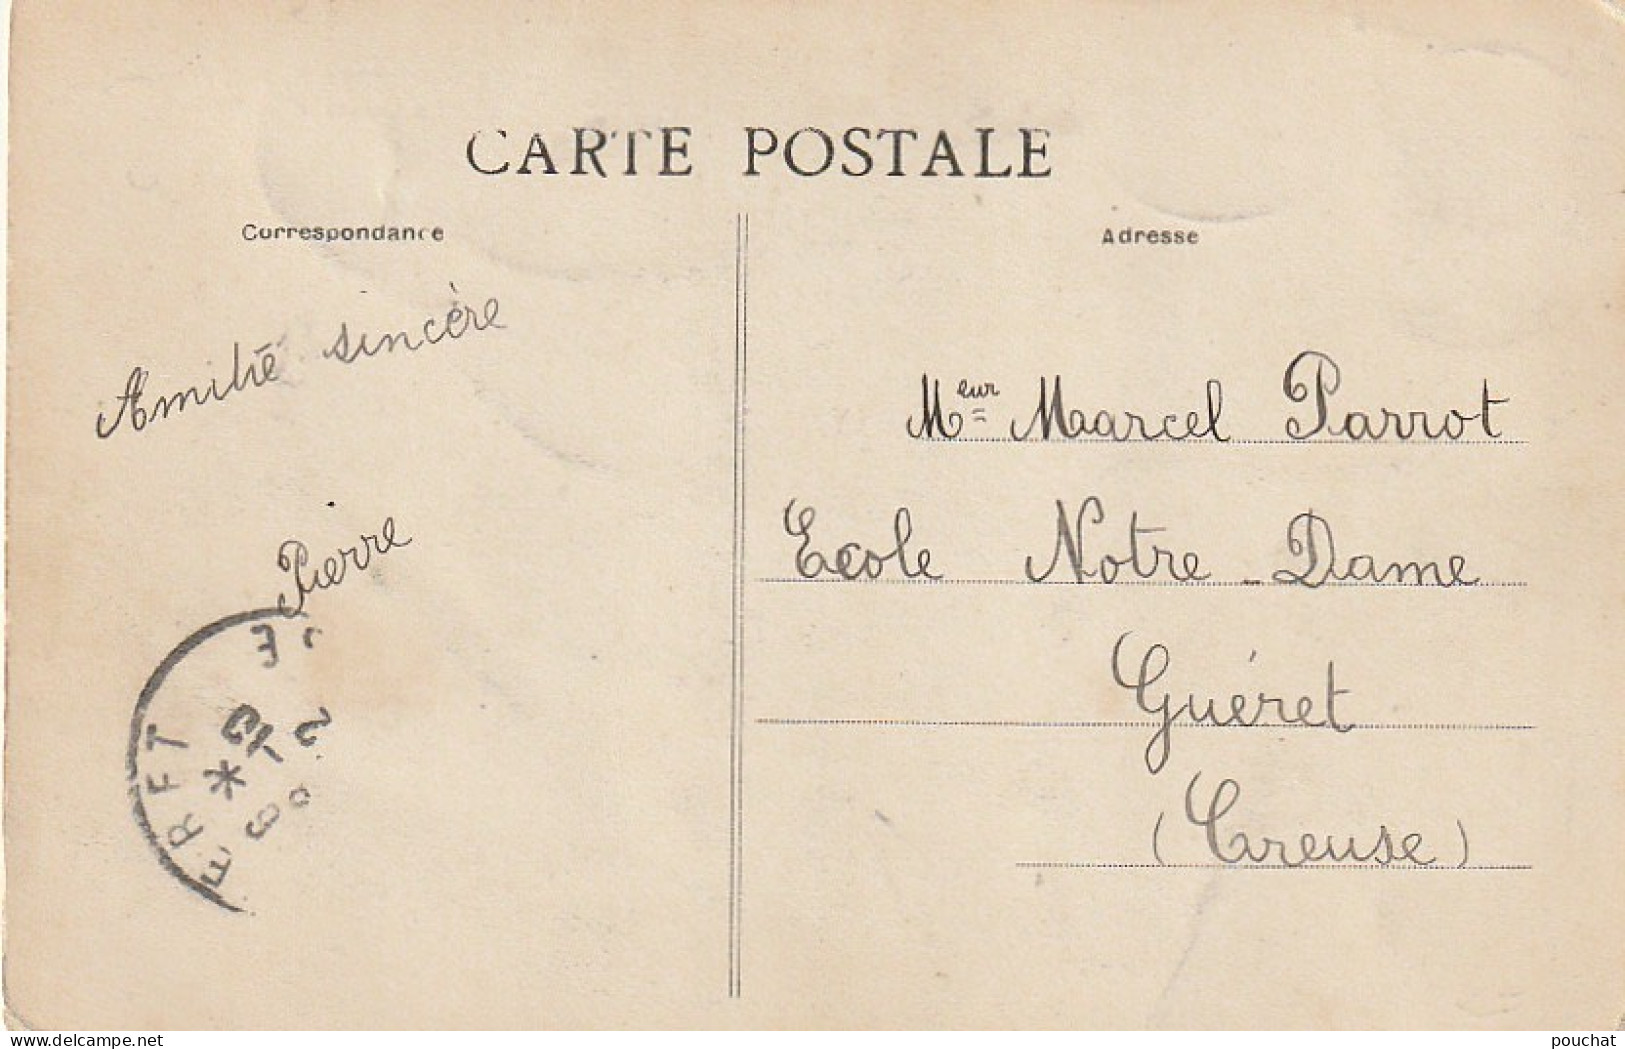 CARTE POSTALE
Correspondance
Adresse
Amitié sincère
Pierre
Meur Marcel Parrot
Ecole Notre-Dame
Guéret
(Creuse)
ERET
delcampe.net
pouchat